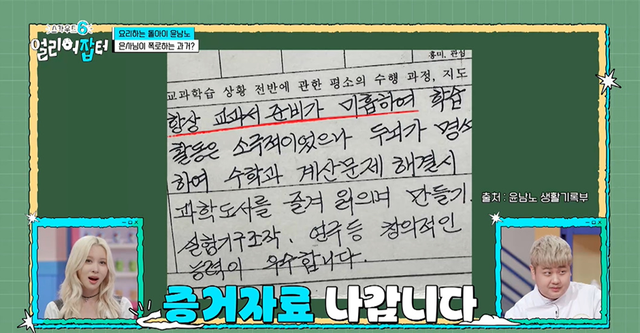 스카우트6
얼리어잡터
요리하는 돌아이 윤남노
은사님이 폭로하는 과거?
흥미, 관심
교과학습 상황 전반에 관한 평소의 수행 과정, 지도
항상 교과서 준비가 미흡하여 학습
활동은 소극적이었으나 두뇌가 명석
하여 수학과 계산문제 해결시
과학도서를 즐겨 읽으며 만들기.
실험기구조작, 연구등 창의적인
능력이 우수합니다.
출처 : 윤남노 생활기록부
증거자료 나갑니다